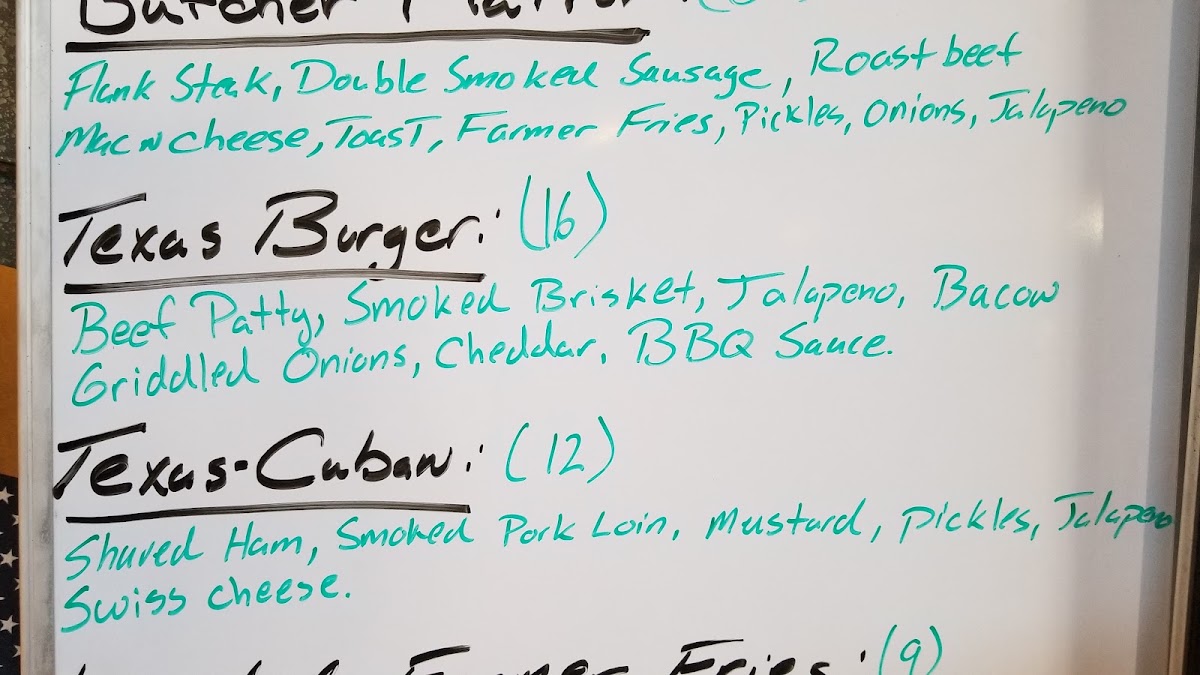 Butcher Platter:
Flank Steak, Double Smoked Sausage, Roast beef
Mac n cheese, Toast, Farmer Fries, Pickles, Onions, Jalapeno
Texas Burger: (16)
Beef Patty, Smoked Brisket, Jalapeno, Bacon
Griddled Onions, Cheddar, BBQ Sauce.
Texas-Cuban: (12)
Shaved Ham, Smoked Pork Loin, Mustard, Pickles, Jalapeno
Swiss cheese.
Farmer Fries: (9)